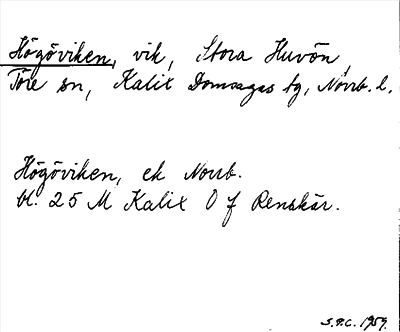 Högöviken, vik, Stora Huvön,
Töre sn, Kalix Domsagas tg, Norrb. l.
Högöviken, ek Norrb.
bl. 25 M Kalix O f Renskär.
S.P.C. 1959.